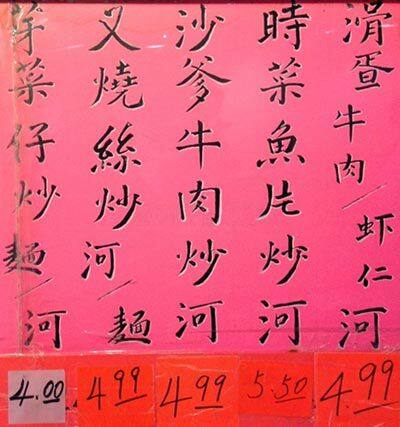 滑疍牛肉/虾仁河
時菜魚片炒河
沙爹牛肉炒河
叉燒絲炒河/麵
菜仔炒麵/河
4.00
4.99
4.99
5.50
4.99